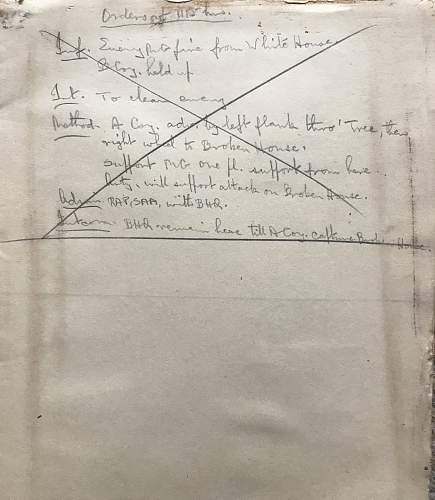 Orders at 1145 hrs.
Inf. Enemy MG fire from White House
B Coy. held up.
Int. To clear enemy
Method. A Coy. adv. by left flank thro' Tree, then
right wheel to Broken House.
Support MG one pl. support from here.
Arty. will support attack on Broken House.
Admin. RAP, SAA, with BHQ.
Intercom. BHQ remain here till A Coy. capture Broken House.